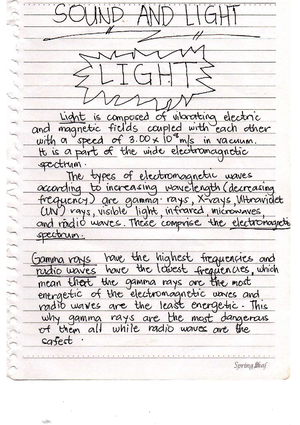 SOUND AND LIGHT
LIGHT
Light is composed of vibrating electric
and magnetic fields coupled with each other
with a speed of 3.00 x 10⁸ m/s in vacuum.
It is a part of the wide electromagnetic
spectrum.
The types of electromagnetic waves
according to increasing wavelength (decreasing
frequency) are gamma rays, X-rays, Ultraviolet
(UV) rays, visible light, infrared, microwaves
and radio waves. These comprise the electromagnetic
spectrum.
Gamma rays have the highest frequencies and
radio waves have the lowest frequencies, which
mean that the gamma rays are the most
energetic of the electromagnetic waves and
radio waves are the least energetic. This
why gamma rays are the most dangerous
of them all while radio waves are the
safest.
Spring Leaf